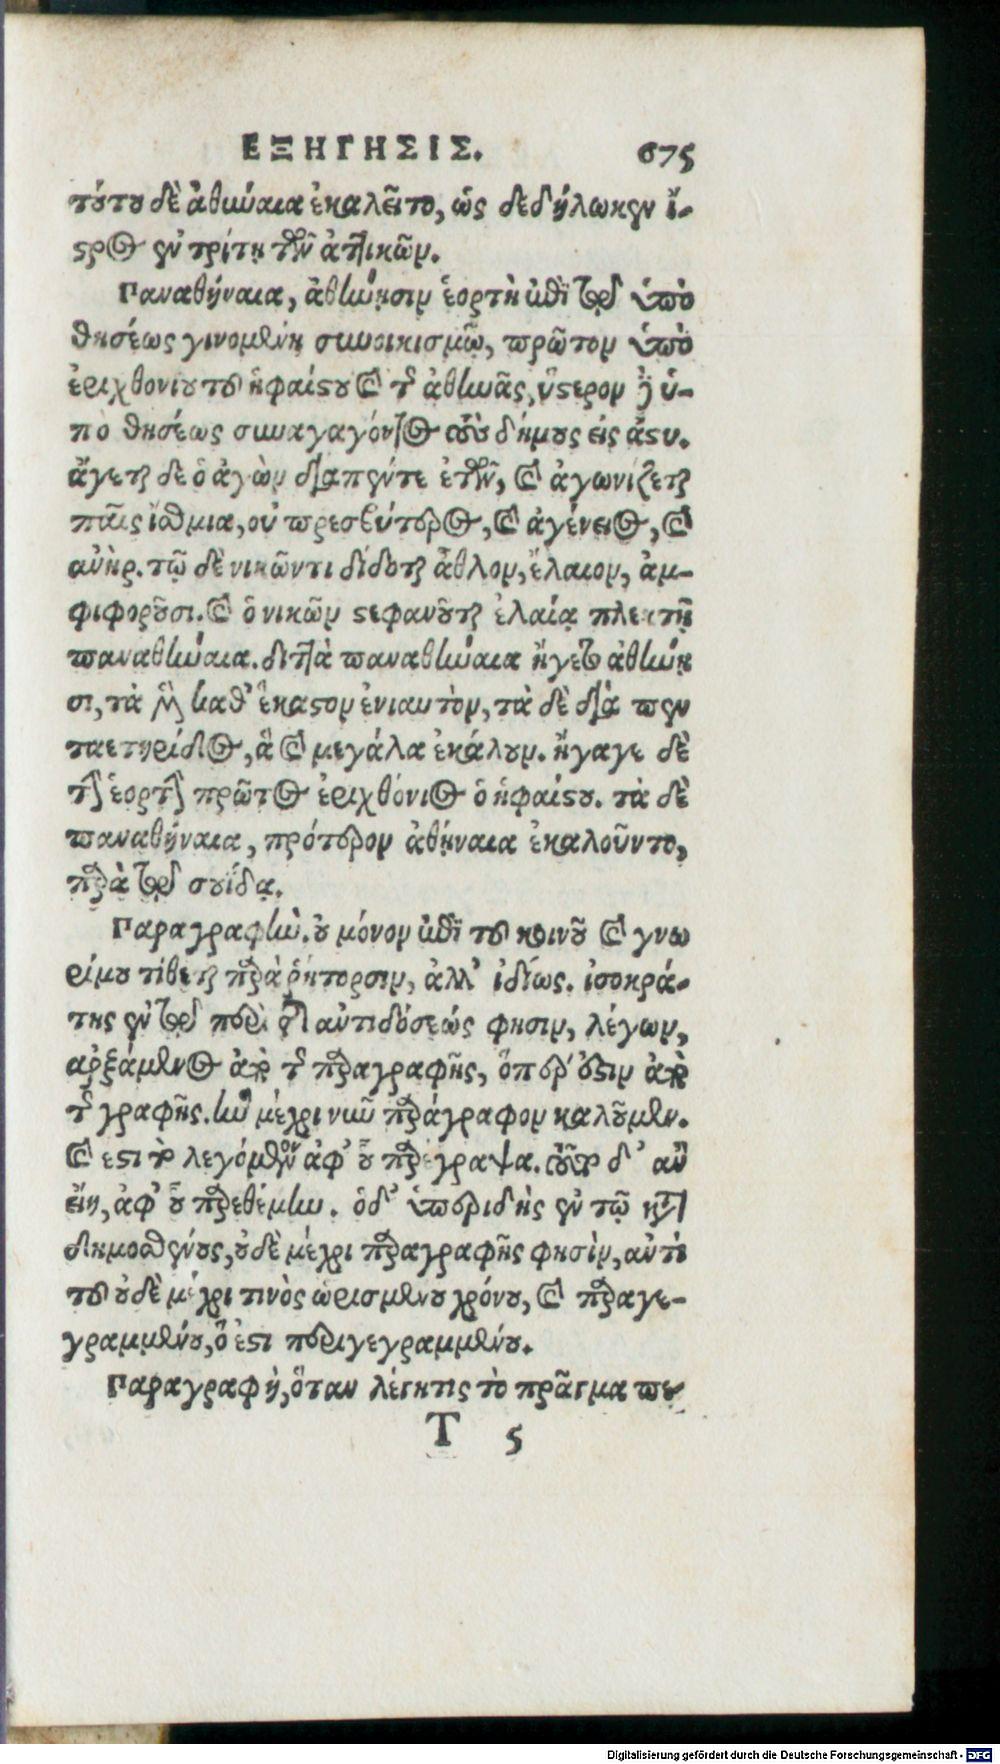 ΕΞΗΓΗΣΙΣ. 675
τούτου δὲ ἀθήναια ἐκαλεῖτο, ὡς δεδήλωκεν ἴ-
στρος ἐν τρίτῃ τῶν ἀττικῶν.
Παναθήναια, ἀθήνησιν ἑορτὴ ἐπὶ τῷ ὑπὸ
θησέως γινομένη συνοικισμῷ, πρῶτον ὑπὸ
ἐριχθονίου τοῦ ἡφαίστου καὶ τῆς ἀθηνᾶς, ὕστερον δὲ ὑ-
πὸ θησέως συναγαγόντος τοὺς δήμους εἰς ἄστυ.
ἄγεται δὲ ὁ ἀγὼν διὰ πέντε ἐτῶν, καὶ ἀγωνίζεται
παῖς ἴσθμια, οὐ πρεσβύτερος, καὶ ἀγένειος, καὶ
ἀνήρ. τῷ δὲ νικῶντι δίδοται ἆθλον, ἔλαιον, ἀμ-
φιφοροῦσι. καὶ ὁ νικῶν στεφανοῦται ἐλαίᾳ πλεκτῇ
παναθήναια. διττὰ παναθήναια ἤγετο ἀθήνη
σι, τὰ μὲν καθ' ἕκαστον ἐνιαυτὸν, τὰ δὲ διὰ πεν
ταετηρίδος, ἃ καὶ μεγάλα ἐκάλουν. ἤγαγε δὲ
τὴν ἑορτὴν πρῶτος ἐριχθόνιος ὁ ἡφαίστου. τὰ δὲ
παναθήναια, πρότερον ἀθήναια ἐκαλοῦντο,
παρὰ τῷ σουΐδᾳ.
Παραγραφὴν. οὐ μόνον ἐπὶ τοῦ κοινοῦ καὶ γνω
ρίμου τίθεται παρὰ ῥήτορσιν, ἀλλ' ἰδίως. ἰσοκρά-
της ἐν τῷ περὶ τῆς ἀντιδόσεώς φησιν, λέγων,
ἀρξάμενος ἀπὸ τῆς παραγραφῆς, ὅπερ ἐστὶν ἀπὸ
τῆς γραφῆς. ἣν μέχρι νῦν παράγραφον καλοῦμεν.
καὶ ἔστι τὸ λεγόμενον ἀφ' οὗ παρέγραψα. τοῦτο δ' ἂν
εἴη, ἀφ' οὗ παρεθέμην. ὁ δ' ὑπερίδης ἐν τῷ κατὰ
δημοσθένους, οὐδὲ μέχρι παραγραφῆς φησὶν, ἀντὶ
τοῦ οὐδὲ μέχρι τινὸς ὡρισμένου χρόνου, καὶ παραγε-
γραμμένου, ὅ ἐστι περιγεγραμμένου.
Παραγραφὴ, ὅταν λέγῃ τις τὸ πρᾶγμα πε
T 5
Digitalisierung gefördert durch die Deutsche Forschungsgemeinschaft - DFG